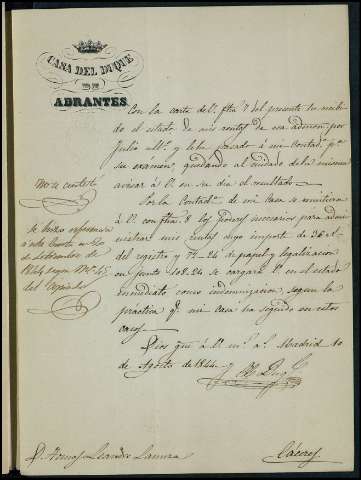 CASA DEL DUQUE
DE
ABRANTES
Con la carta de V. fha 7 del presente he recibi
do el estado de mis rentas de esa admon por
Julio ult.º y lo he pasado á mi Contad.ª p.ª
su exámen, quedando al cuidado de la misma
avisar á V. en su dia el resultado.
Por la Contad.ª de mi Casa se remitirá
á V. con fha los Poderes necesarios para admi
nistrar mis rentas cuyo importe de 36
del registro y 72..24 de papel y legalizacion
en junto 108..24 se cargará V. en el estado
inmediato como indemnizacion, segun la
práctica q.e mi casa ha seguido en estos
casos.
Dios gue á V. m.s a.s Madrid 10
de Agosto de 1844
El Duq.e
No se contestó
Se hizo referencia
á esta Carta en 20
de Setiembre de
1844 segun Nº 45
del Copiador
D. Tomas Leandro Lamora
Cáceres